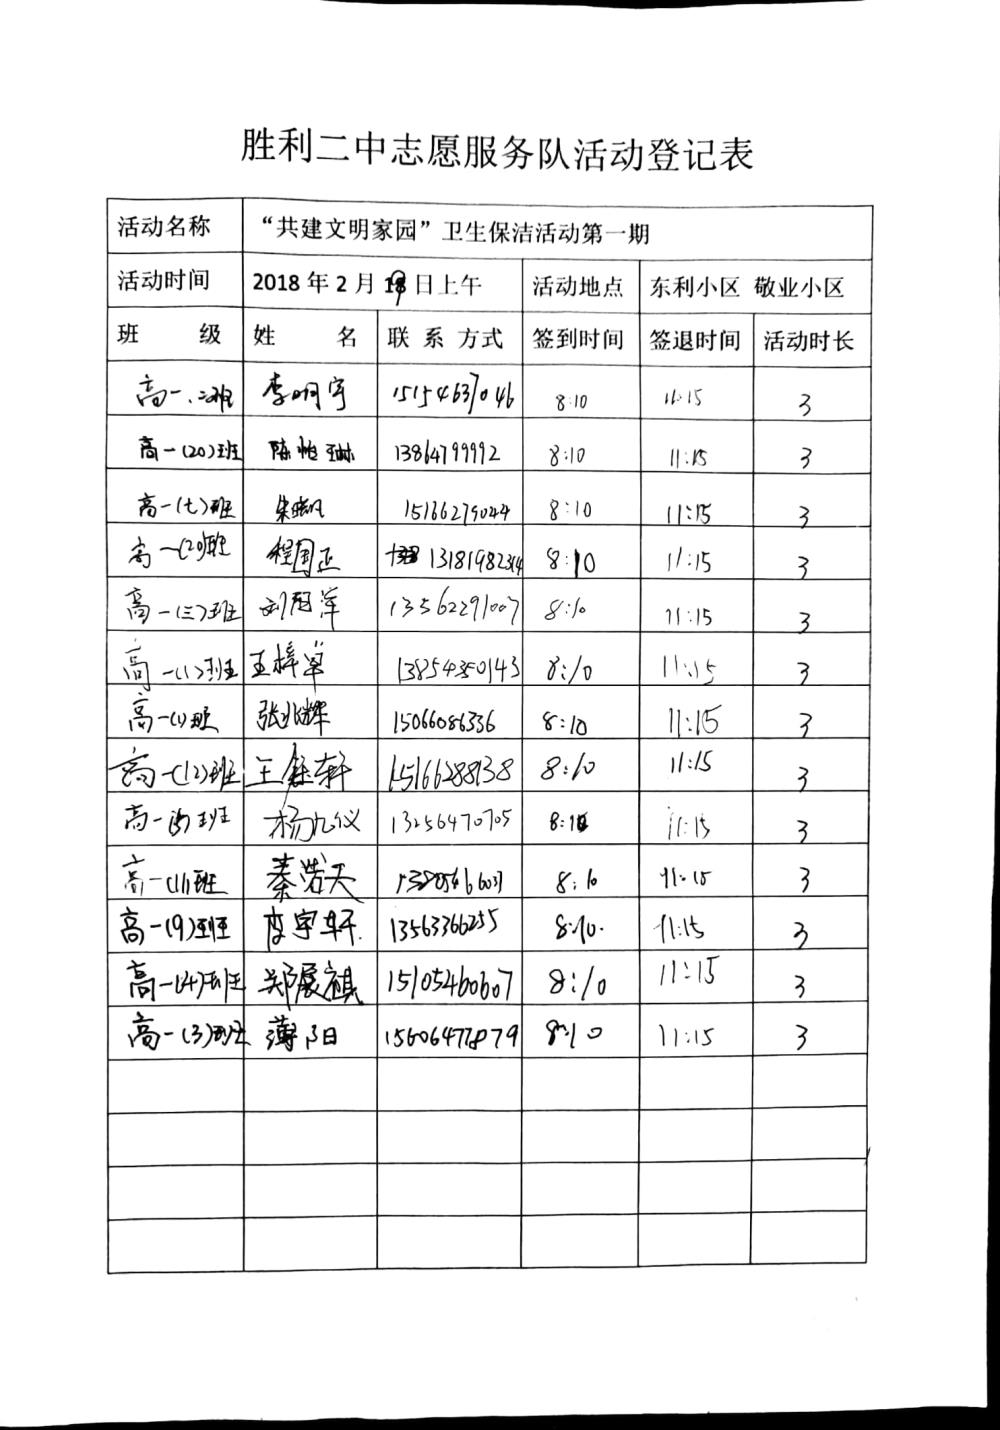 胜利二中志愿服务队活动登记表
活动名称 “共建文明家园”卫生保洁活动第一期
活动时间 2018年2月19日上午 活动地点 东利小区 敬业小区
班 级 姓 名 联系方式 签到时间 签退时间 活动时长
高一.二班 李明宇 15154637046 8:10 11:15 3
高一(20)班 陈怡琳 13864799992 8:10 11:15 3
高一(七)班 15166279044 8:10 11:15 3
高一(20)班 程国正 13181982314 8:10 11:15 3
高一(三)班 13562291007 8:10 11:15 3
高一(1)班 王梓卓 13854350143 8:10 11:15 3
高一(1)班 张兆辉 15066086336 8:10 11:15 3
高一(12)班 王钰轩 15166288138 8:10 11:15 3
高一 班 杨九仪 13256470705 8:10 11:15 3
高一(11)班 秦浩天 8:10 11:15 3
高一(9)班 李宇轩 13563366255 8:10 11:15 3
高一(4)班 郑展祺 15105460607 8:10 11:15 3
高一(3)班 薄阳 15606477879 8:10 11:15 3